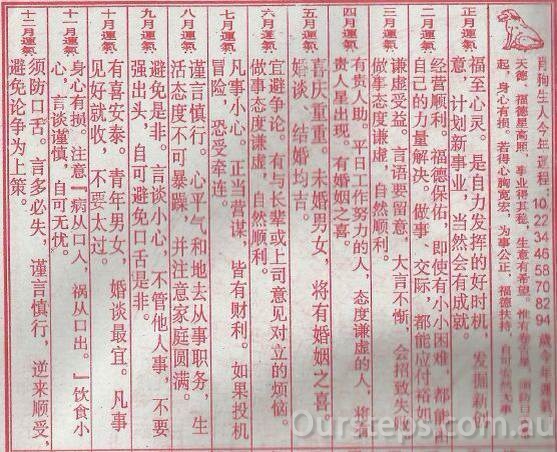 肖狗生人今年运程 10 22 34 46 58 70 82 94 歲今年運
天德、福德星高照,事业得其稳,生意有希望。惟有卷舌星,须防口舌
起,身心有损。若得心胸宽宏,为事公正,福德扶持,自可安然无事
正月運氣
福至心灵。是自力发挥的好时机,发掘新创
意,计划新事业,当然会有成就。
二月運氣
经营顺利。福德保佑,即使有小小困难,都能由
自己的力量解决。做事、交际,都能应付裕如
三月運氣
谦虚受益。言语要留意,大言不惭,会招致失败
做事态度谦虚,自然顺利。
四月運氣
有贵人助。平日工作努力的人,态度谦虚的人,将
贵人星出现。有婚姻之喜。
五月運氣
喜庆重重。未婚男女,将有婚姻之喜。
婚谈、结婚均吉。
六月運氣
宜避争论。有与长辈或上司意见对立的烦恼。
做事态度谦虚,自然顺利。
七月運氣
凡事小心。正当营谋,皆有财利。如果投机
冒险,恐受牵连。
八月運氣
谨言慎行。心平气和地去从事职务,生
活态度不可暴躁,并注意家庭圆满。
九月運氣
避免是非。言谈小心,不管他人事,不要
强出头,自可避免口舌是非。
十月運氣
有喜安泰。青年男女,婚谈最宜。凡事
见好就收,不要太过。
十一月運氣
身心有损。注意『病从口入,祸从口出。』饮食小
心,言谈谨慎,自可无忧。
十二月運氣
须防口舌。言多必失,谨言慎行,逆来顺受,
避免论争为上策。
Oursteps.com.au